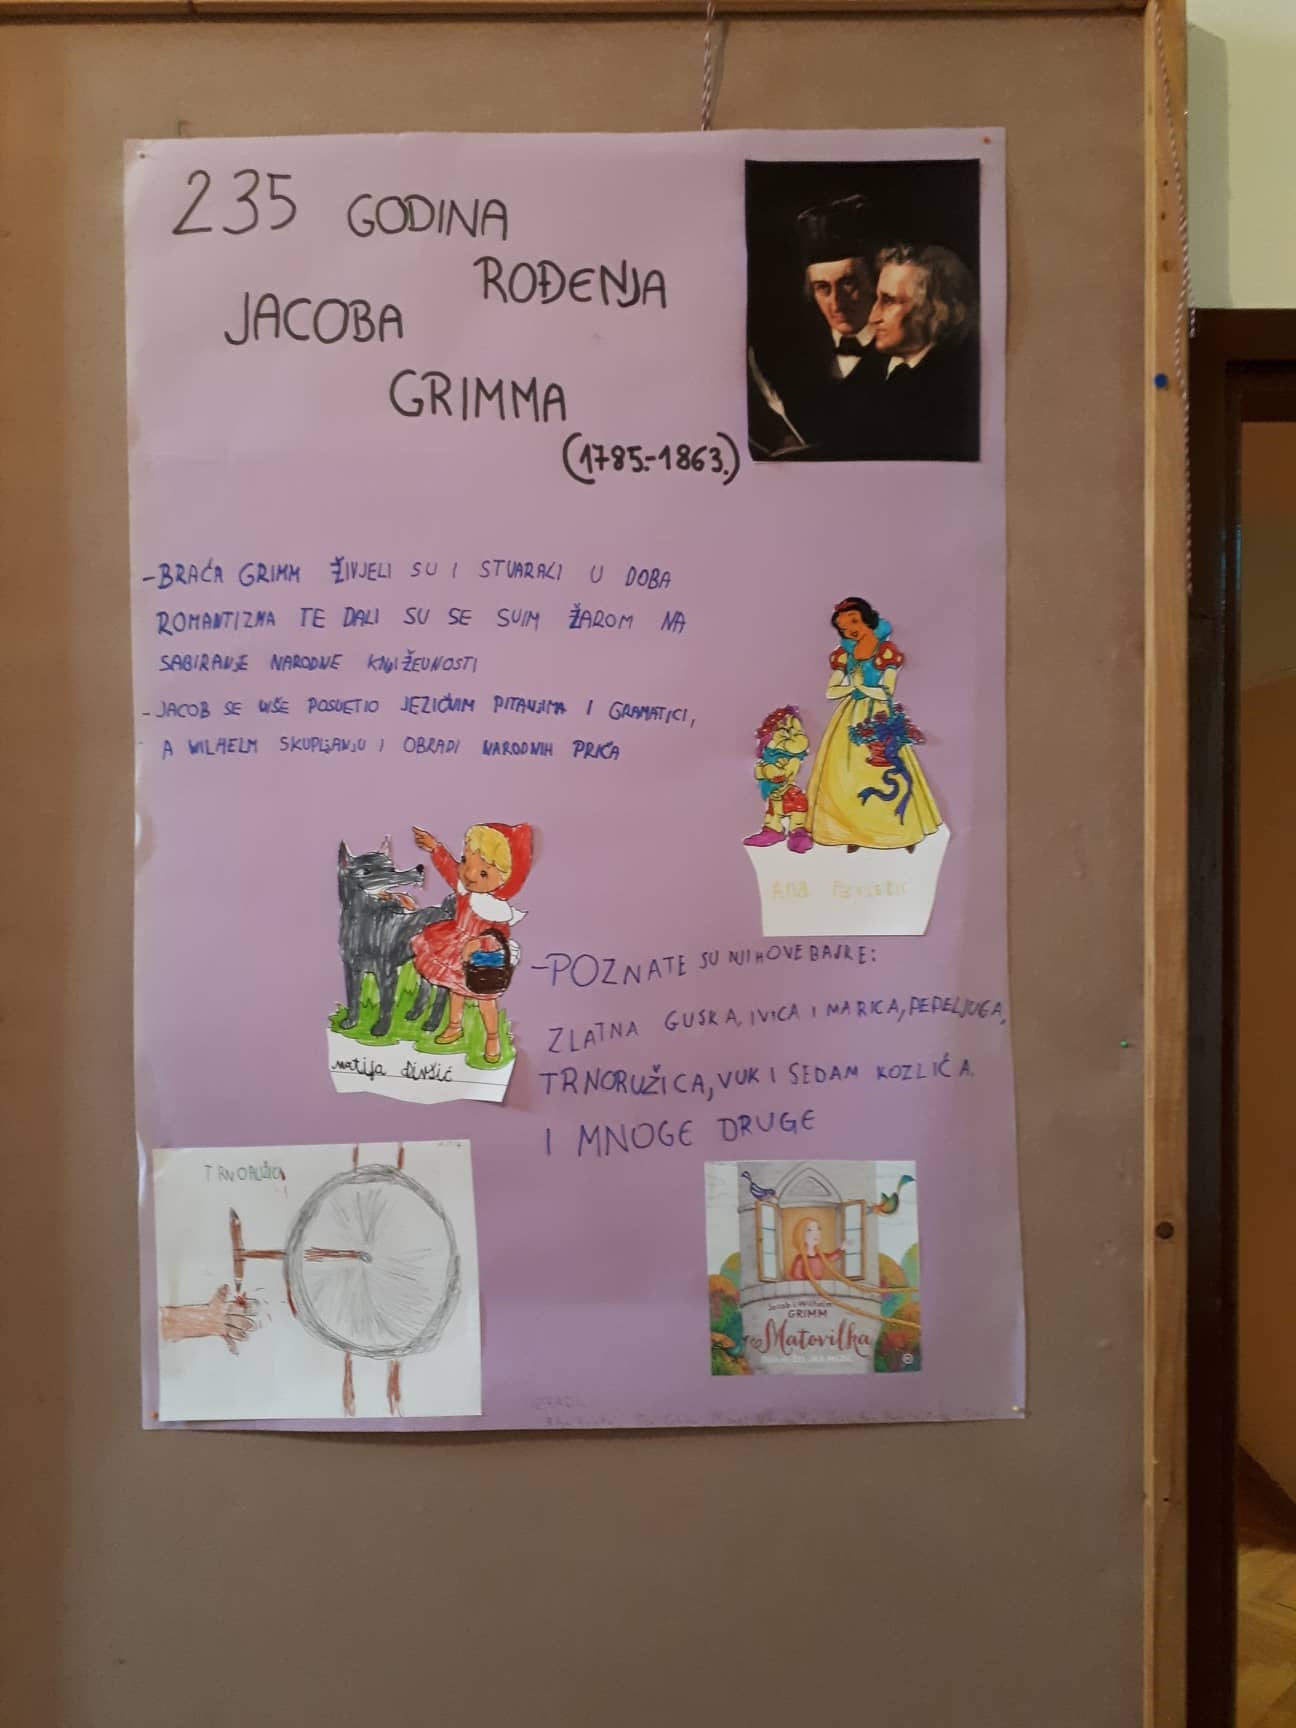 235 GODINA
ROĐENJA
JACOBA
GRIMMA
(1785.-1863.)
-BRAĆA GRIMM ŽIVJELI SU I STVARALI U DOBA
ROMANTIZMA TE DALI SU SE SVIM ŽAROM NA
SABIRANJE NARODNE KNJIŽEVNOSTI
-JACOB SE VIŠE POSVETIO JEZIČNIM PITANJIMA I GRAMATICI,
A WILHELM SKUPLJANJU I OBRADI NARODNIH PRIČA
Ana
-POZNATE SU NJIHOVE BAJKE:
ZLATNA GUSKA, IVICA I MARICA, PEPELJUGA,
TRNORUŽICA, VUK I SEDAM KOZLIĆA
I MNOGE DRUGE
matija Divšić
TRNORUŽICA
Jacob i Wilhelm
GRIMM
Matovilka